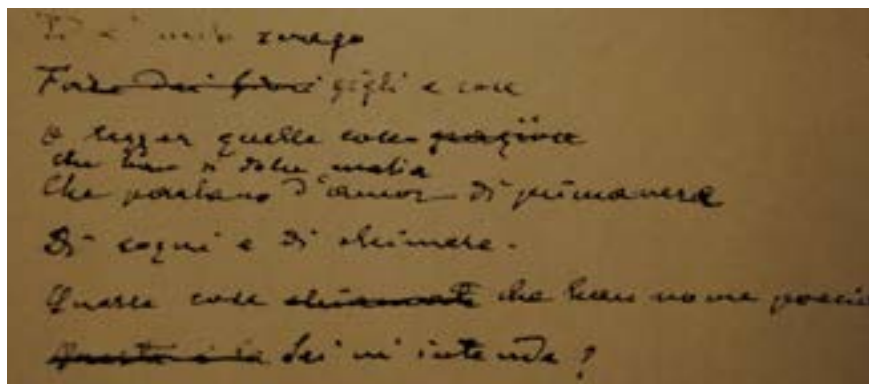 svago
dei fiori gigli e rose
e legger quelle cose
che han sì dolce malia
Che parlano d'amor di primavere
Di sogni e di chimere.
Quelle cose chiamate che han nome poesia
Lei m'intende ?